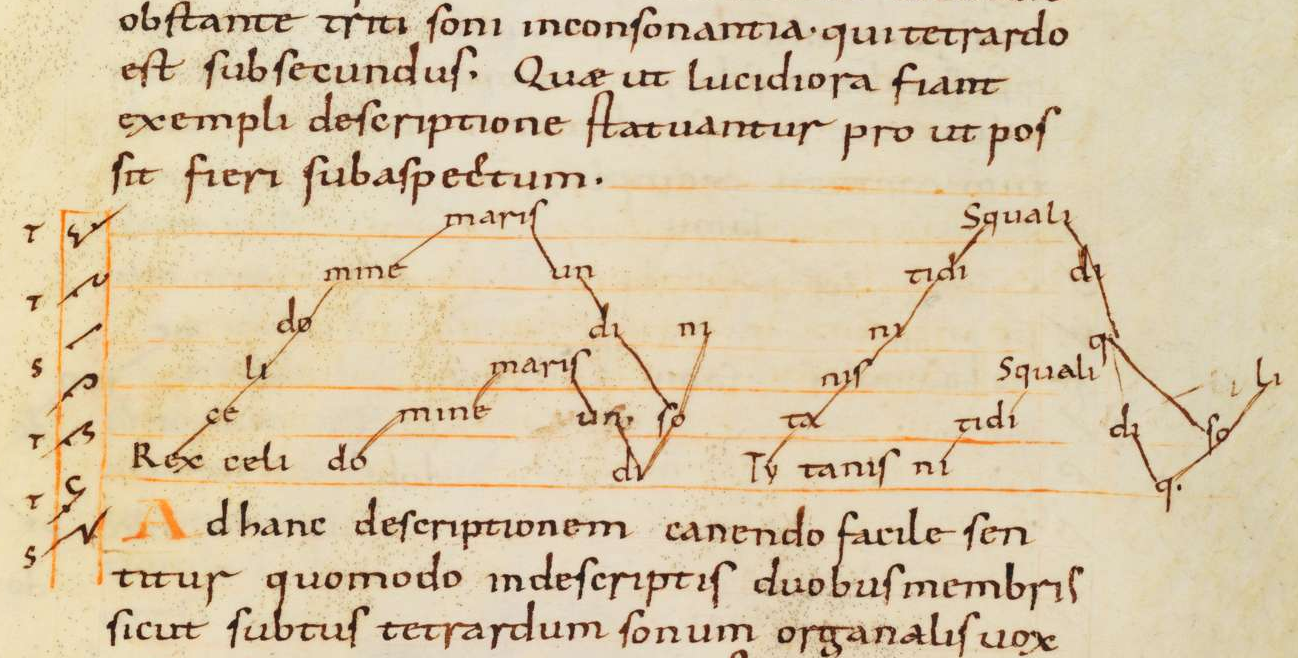 obstante triti soni inconsonantia· qui tetrardo
est subsecundus· Quæ ut lucidiora fiant
exempli descriptione statuantur pro ut pos
sit fieri subaspectum·
T maris Squali
mine un tidi di
T do di ni ni q·
S li maris nis Squali li
ce mine un so ta tidi di so
T Rex celi do di Ty tanis ni q·
T Ad hanc descriptionem canendo facile sen
S titur quomodo indescriptis duobus membris
sicut subtus tetrardum sonum organalis uox